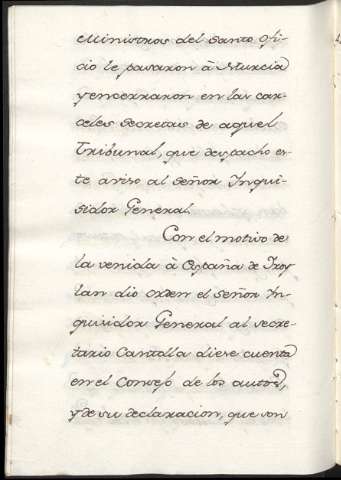 Ministros del Santo Ofi-
cio le pasaron à Murcia
y encerraron en las car-
celes secretas de aquel
Tribunal, que despacho es-
te aviso al señor Inqui-
sidor General.
Con el motivo de
la venida à España de Froy
lan dio orden el señor In-
quisidor General al secre-
tario Cantolla diese cuenta
en el Consejo de los autos,
y de su declaracion, que son